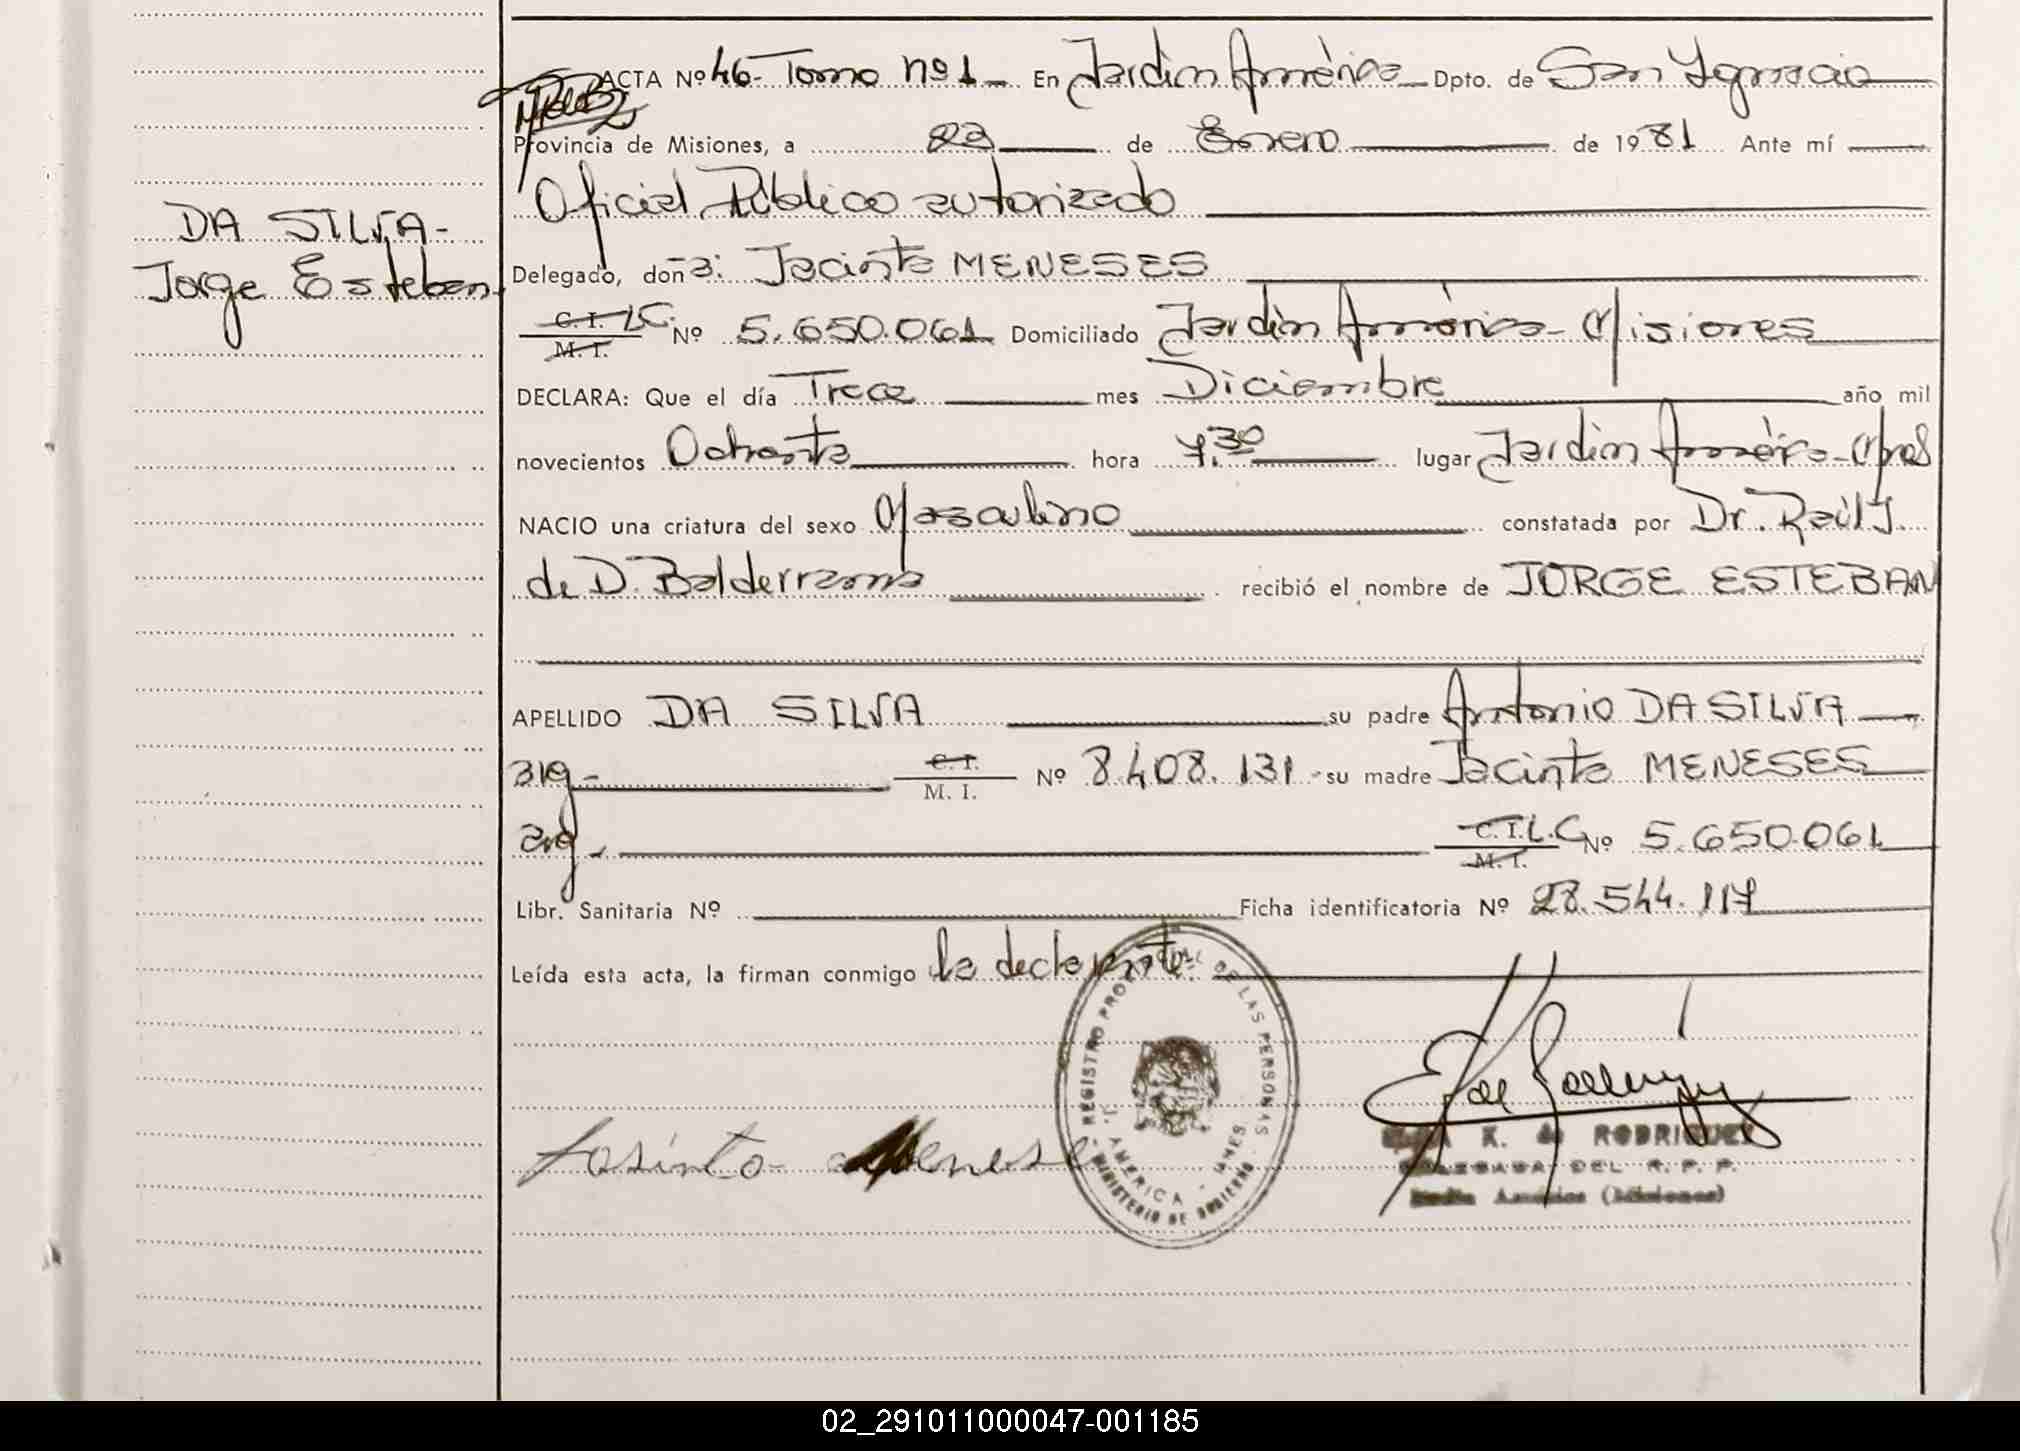 ACTA Nº 46- Tomo nº 1 En Jardín América Dpto. de San Ygnacio
Provincia de Misiones, a 23 de Enero de 1981 Ante mí
Oficial Público autorizado
DA SILVA-
Jorge Esteban
Delegado, don-a: Jacinta MENESES
C. I. M. I. LC. Nº 5.650.061 Domiciliado Jardín América- Misiones
DECLARA: Que el día Trece mes Diciembre año mil
novecientos Ochenta hora 7.30 lugar Jardín América-Mnes
NACIO una criatura del sexo Masculino constatada por Dr. Raúl J.
de D. Balderrama recibió el nombre de JORGE ESTEBAN
APELLIDO DA SILVA su padre Antonio DA SILVA
arg- C. I. M. I. Nº 8.408.131 - su madre Jacinta MENESES
arg. C. I. M. I. L.C Nº 5.650.061
Libr. Sanitaria Nº Ficha identificatoria Nº 28.544.117
Leída esta acta, la firman conmigo la declarante
REGISTRO DE LAS PERSONAS
J. AMERICA - MNES.
MINISTERIO DE GOBIERNO
Jasinta Menese
K. de RODRIGUEZ
DELEGADA DEL R. P. P.
Jardín América (Misiones)
02_291011000047-001185